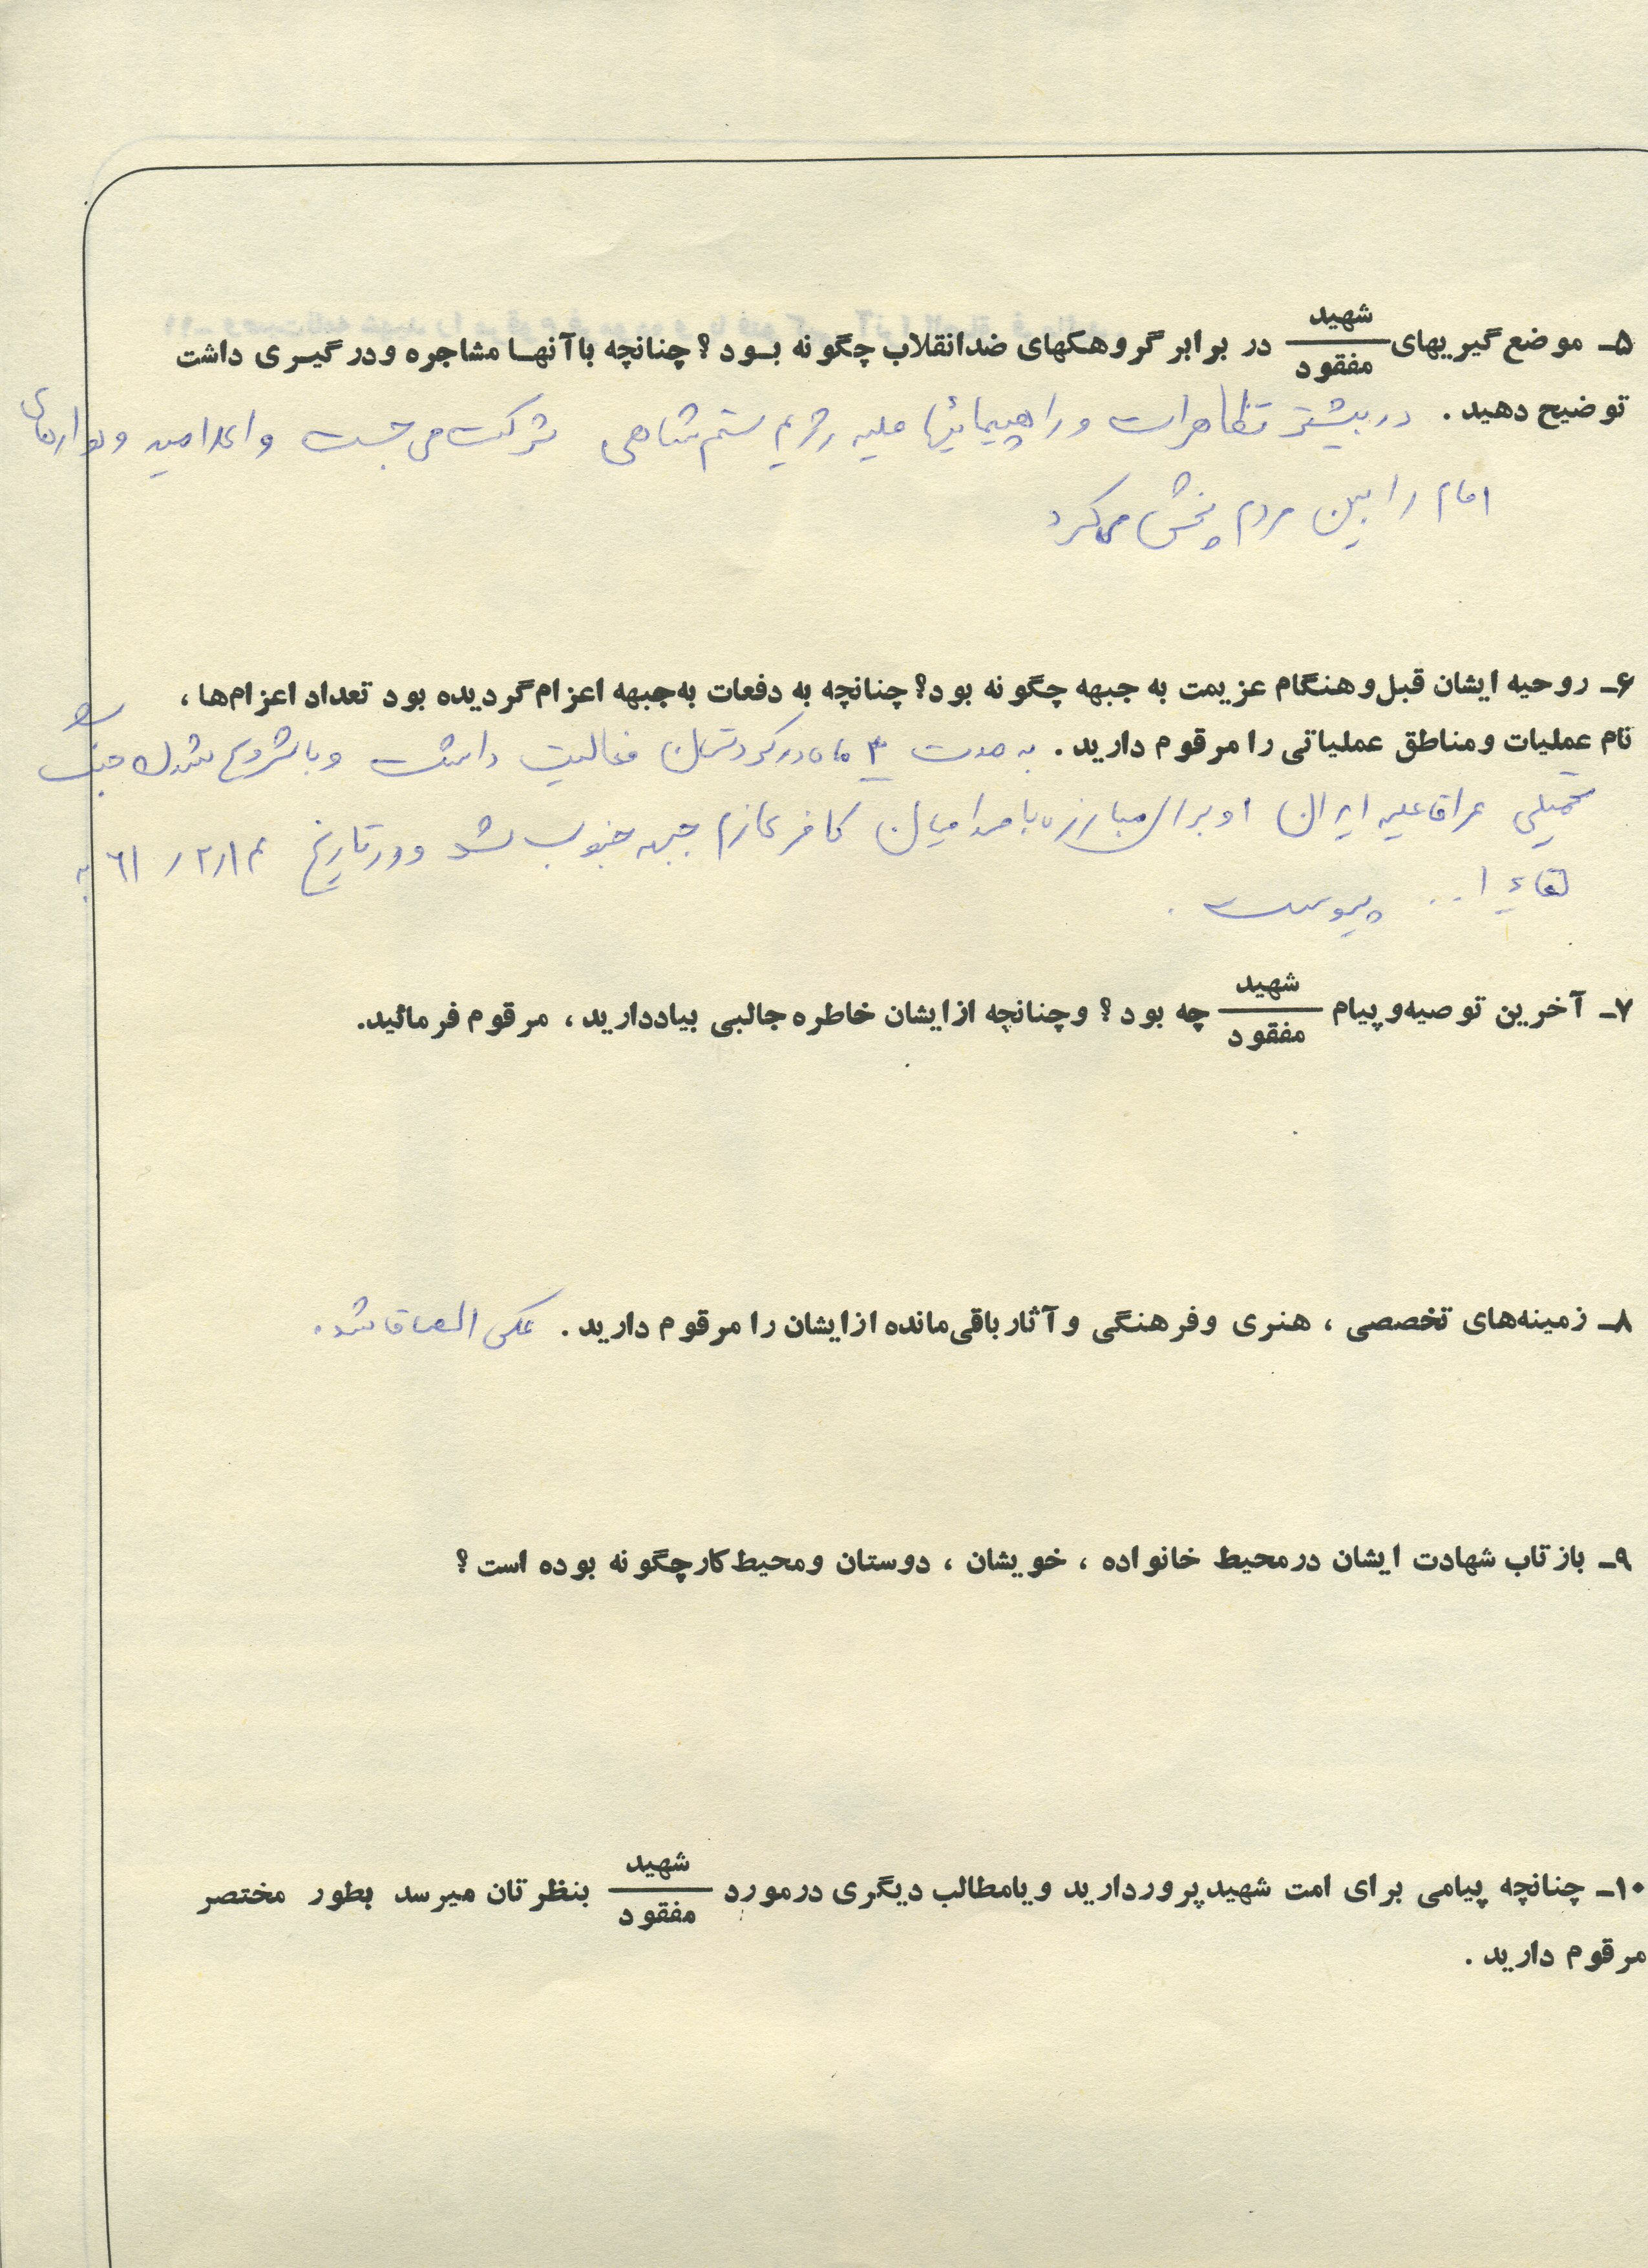 ۵ـ موضع‌گیریهای شهید/مفقود در برابر گروهکهای ضدانقلاب چگونه بود؟ چنانچه باآنها مشاجره ودرگیری داشت
توضیح دهید. در بیشتر تظاهرات و راهپیمائیها علیه رژیم ستم شاهی شرکت می جست و اعلامیه و نوارهای
امام را بین مردم پخش میکرد
۶ـ روحیه ایشان قبل‌وهنگام عزیمت به جبهه چگونه بود؟ چنانچه به دفعات به‌جبهه اعزام‌گردیده بود تعداد اعزام‌ها،
نام عملیات ومناطق عملیاتی را مرقوم دارید. به مدت ۳ ماه در کردستان فعالیت داشت و با شروع شدن جنگ
تحمیلی عراق علیه ایران او برای مبارزه با صدامیان کافر عازم جبهه جنوب شد و در تاریخ ۶۱/۲/۱۴ به
لقاء ا... پیوست.
۷ـ آخرین توصیه‌وپیام شهید/مفقود چه بود؟ وچنانچه ازایشان خاطره‌جالبی بیاددارید، مرقوم فرمائید.
۸ـ زمینه‌های تخصصی، هنری وفرهنگی وآثارباقی‌مانده ازایشان را مرقوم دارید. عکس الصاق شد.
۹ـ بازتاب شهادت ایشان درمحیط خانواده، خویشان، دوستان ومحیط‌کارچگونه بوده است؟
۱۰ـ چنانچه پیامی برای امت شهیدپروردارید ویامطالب دیگری درمورد شهید/مفقود بنظرتان میرسد بطور مختصر
مرقوم دارید.